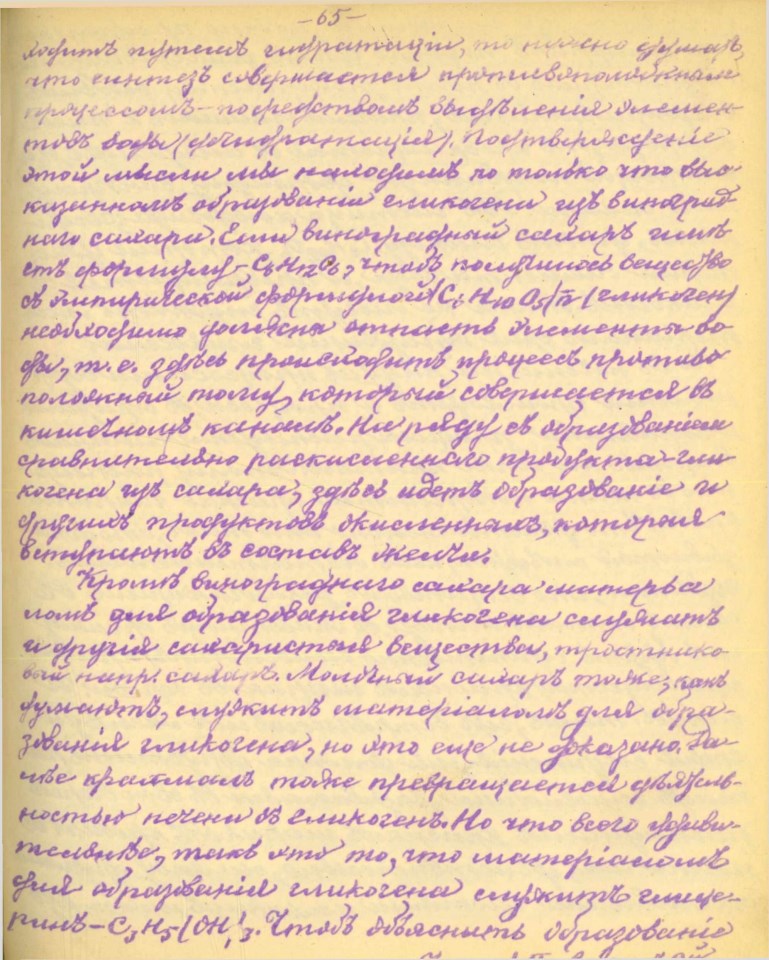 -65-
ходитъ путемъ гидратаціи, то можно думать,
что синтезъ совершается противоположнымъ
процессомъ - посредствомъ выдѣленія элемен-
товъ воды (дегидратація). Подтвержденіе
этой мысли мы находимъ по только что выс
казанномъ образованіи гликогена изъ виноград
наго сахара. Если виноградный сахаръ имѣ
етъ формулу - C6H12O6, чтобъ получилось вещество
съ эмпирической формулой (C6H10O5)n (гликоген)
необходимо должны отпасть элементы во
ды, т.е. здѣсь происходитъ процессъ противо
положный тому, который совершается въ
кишечномъ каналѣ. На ряду съ образованіем
сравнительно раскисленнаго продукта гли
когена изъ сахара, здѣсь идетъ образованіе и
другихъ продуктовъ окисленныхъ, которыя
вступаютъ въ составъ желчи.
Кромѣ винограднаго сахара матерья
ломъ для образованія гликогена служатъ
и другія сахаристыя вещества, тростнико
вый напр. сахаръ. Молочный сахаръ тоже, какъ
думаютъ, служитъ матеріаломъ для обра-
зованія гликогена, но это еще не доказано. Да
лѣе крахмалъ тоже превращается дѣятель-
ностью печени въ гликогенъ. Но что всего удиви-
тельнѣе, такъ это то, что матеріаломъ
для образованія гликогена служитъ глице-
ринъ - C3H5(OH)3. Чтобъ объяснить образованіе